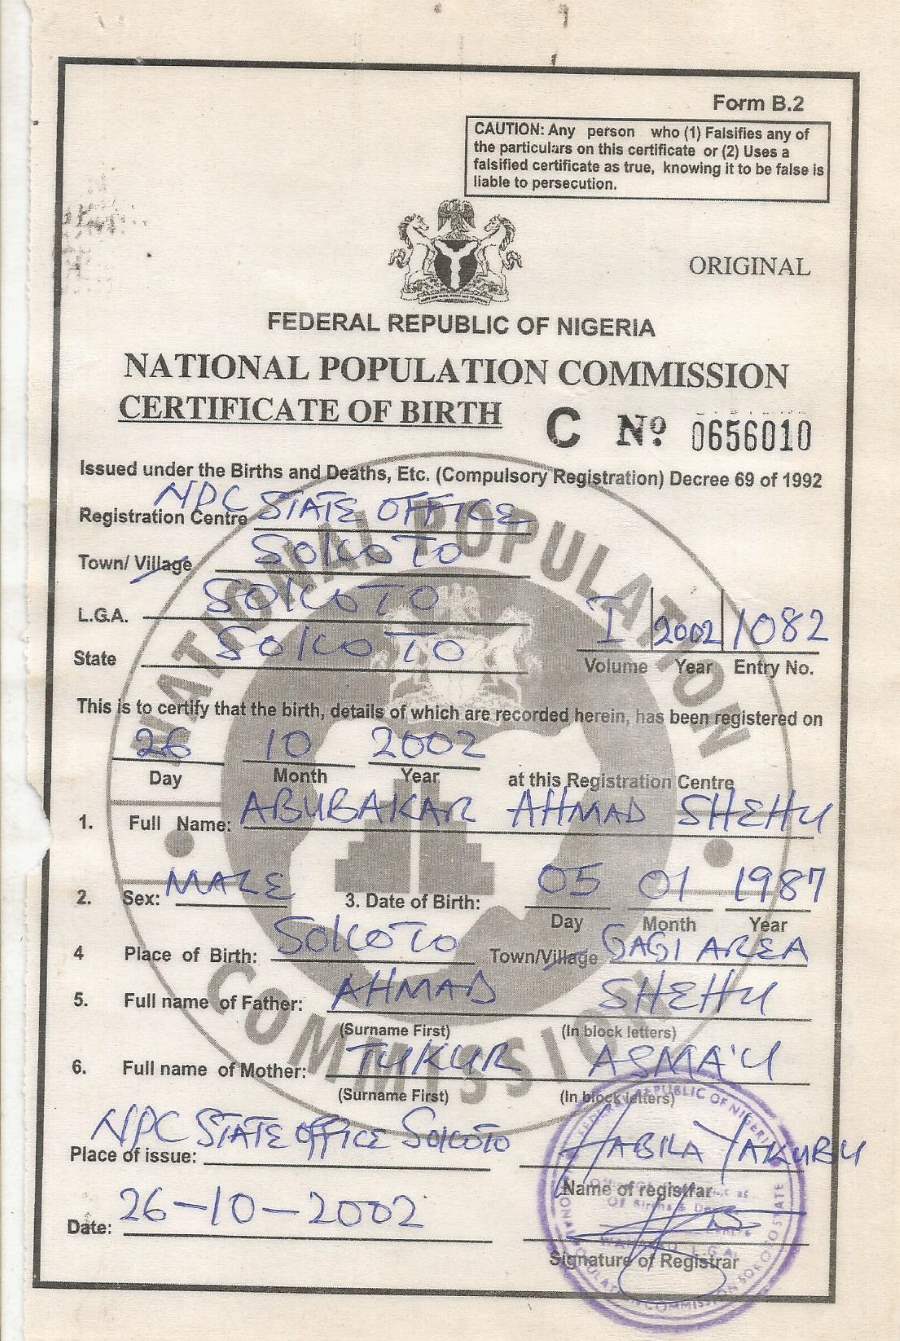 Form B.2
CAUTION: Any person who (1) Falsifies any of
the particulars on this certificate or (2) Uses a
falsified certificate as true, knowing it to be false is
liable to persecution.
ORIGINAL
FEDERAL REPUBLIC OF NIGERIA
NATIONAL POPULATION COMMISSION
CERTIFICATE OF BIRTH C Nº 0656010
Issued under the Births and Deaths, Etc. (Compulsory Registration) Decree 69 of 1992
Registration Centre NPC STATE OFFICE
Town/ Village SOKOTO
L.G.A. SOKOTO
State SOKOTO
I 2002 1082
Volume Year Entry No.
This is to certify that the birth, details of which are recorded herein, has been registered on
26 10 2002
Day Month Year at this Registration Centre
1. Full Name: ABUBAKAR AHMAD SHEHU
2. Sex: MALE 3. Date of Birth: 05 01 1987
Day Month Year
4 Place of Birth: SOKOTO Town/Village GAGI AREA
5. Full name of Father: AHMAD SHEHU
(Surname First) (In block letters)
6. Full name of Mother: TUKUR ASMA'U
(Surname First) (In block letters)
NPC STATE OFFICE SOKOTO HABILA YAKUBU
Place of issue:
Name of registrar
Date: 26-10-2002
Signature of Registrar
NATIONAL POPULATION
COMMISSION
FEDERAL REPUBLIC OF NIGERIA
NATIONAL POPULATION COMMISSION SOKOTO STATE
L.G.A.